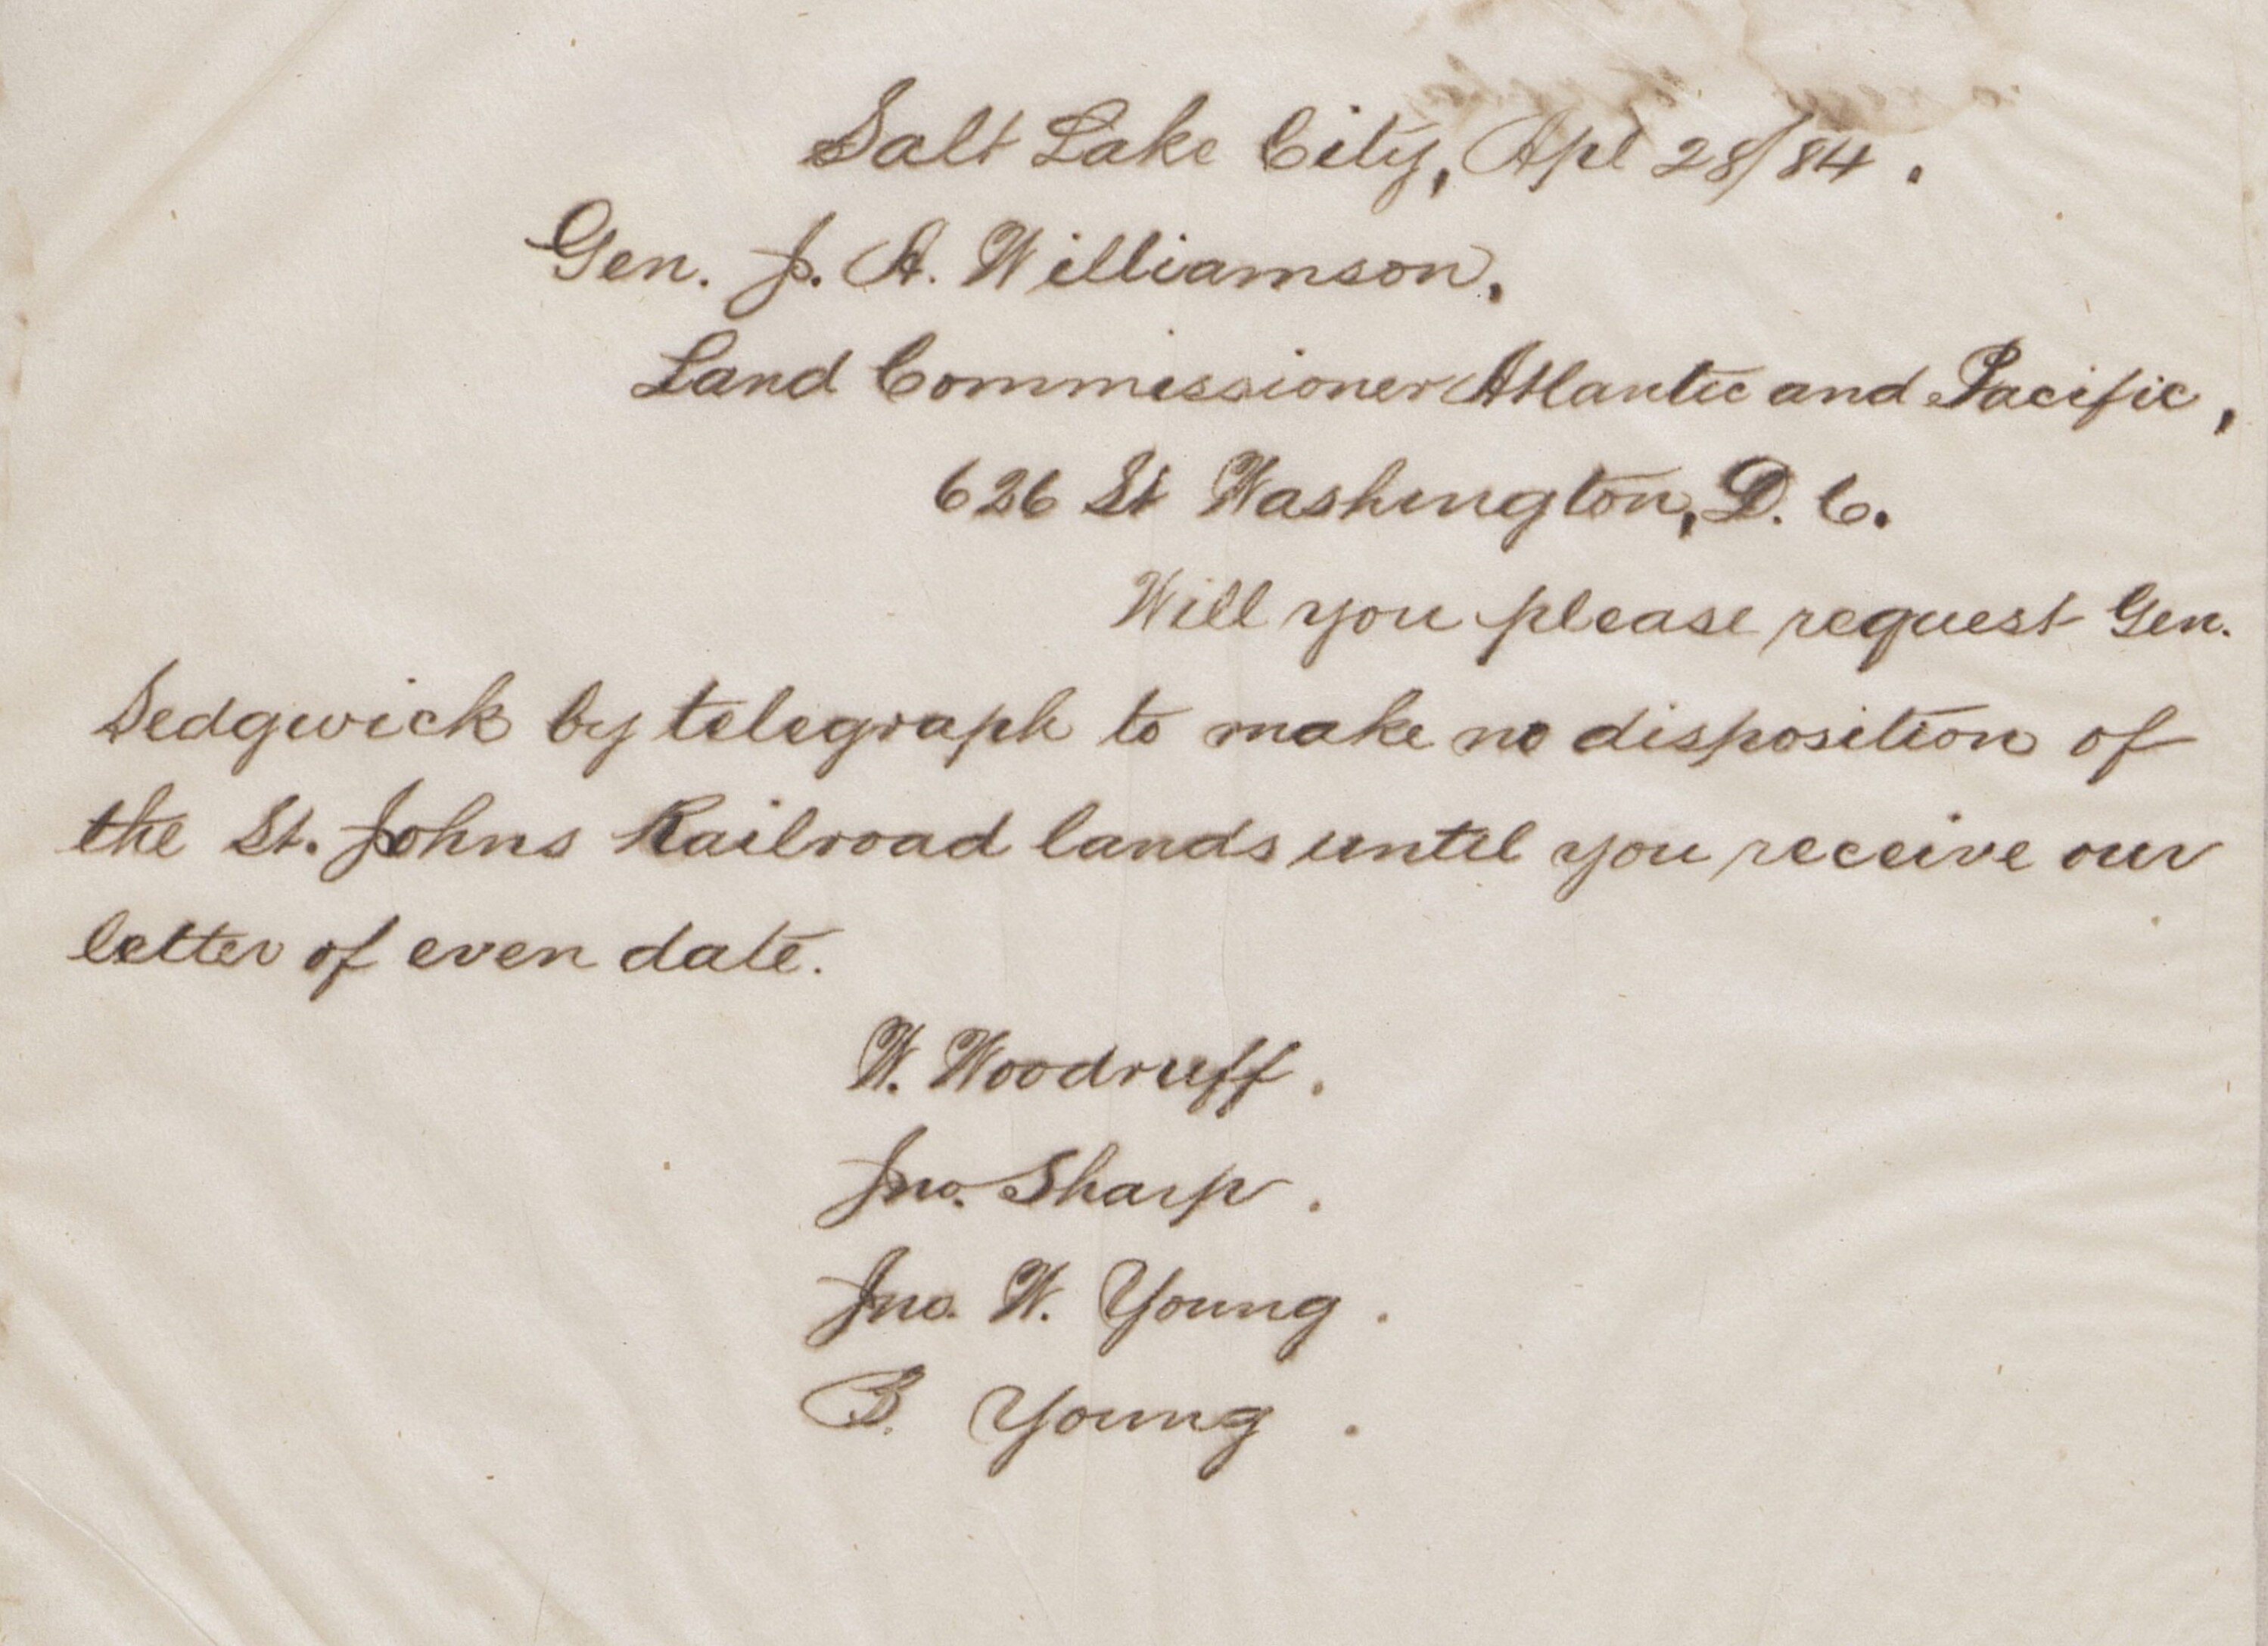 Salt Lake City, Apl 28/84.
Gen. J. A. Williamson,
Land Commissioner Atlantic and Pacific,
626 St Washington, D. C.
Will you please request Gen.
Sedgwick by telegraph to make no disposition of
the St. Johns Railroad lands until you receive our
letter of even date.
W. Woodruff.
Jno. Sharp.
Jno. W. Young.
B. Young.